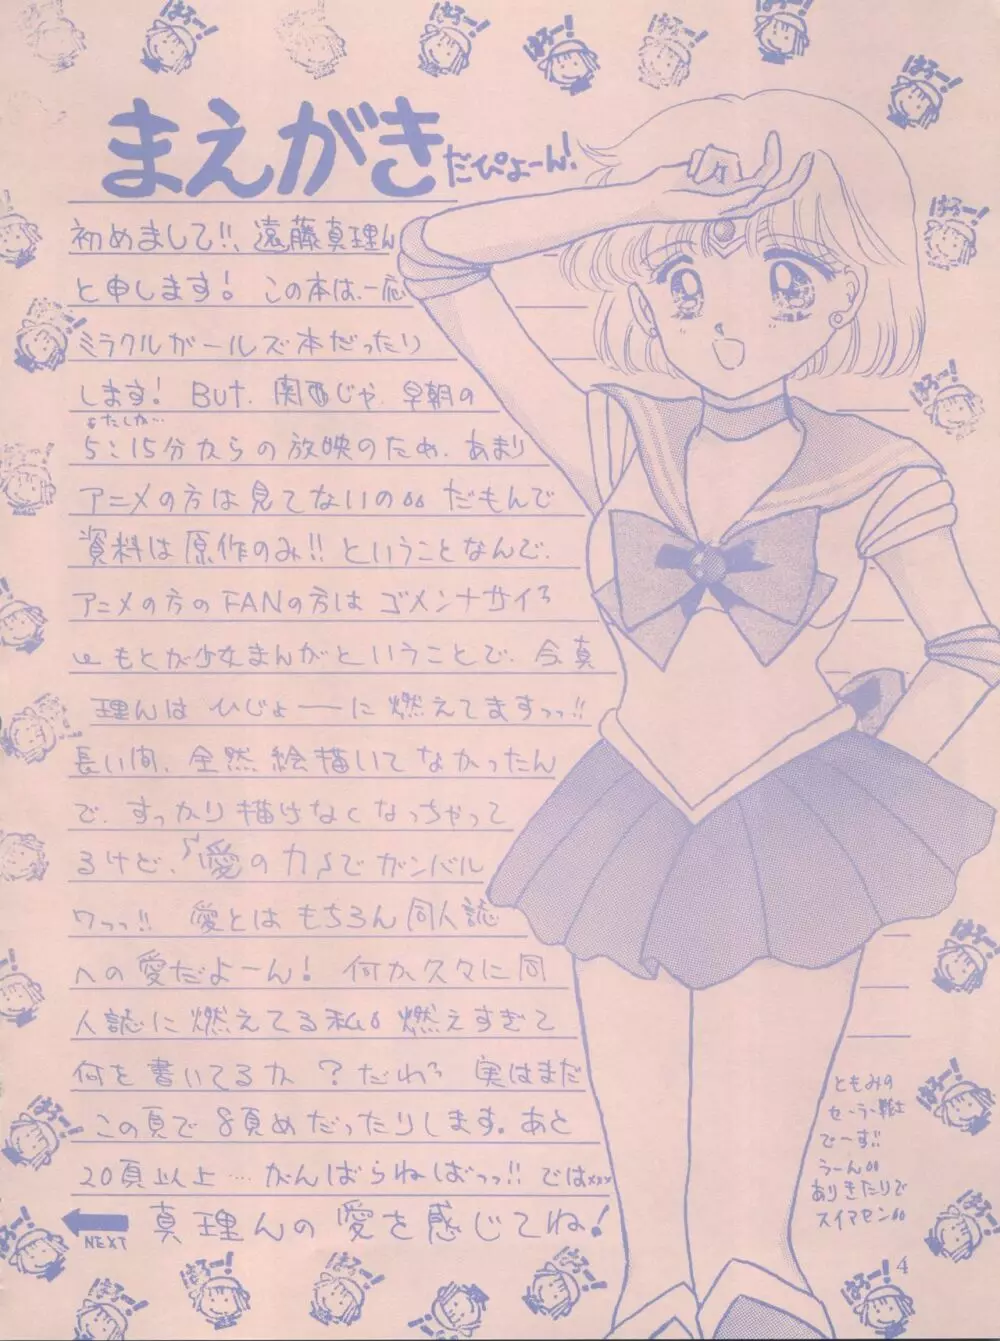 まえがき
だぴょーん!
初めまして!!、遠藤真理ん
と申します! この本は、一応
ミラクルガールズ本だったり
します! But. 関西じゃ、早朝の
↓たしか…
5:15分からの放映のため、あまり
アニメの方は見てないの。。だもんで
資料は原作のみ!! ということなんで、
アニメの方のFANの方はゴメンナサイっ
もとが少女まんがということで、今真
理んは ひじょーーに 燃えてますっっ!!
長い間、全然絵描いてなかったん
で、すっかり描けなくなっちゃって
るけど、「愛の力」でガンバル
ワっっ!! 愛とは もちろん同人誌
への愛だよーん! 何か久々に同
人誌に燃えてる私。燃えすぎて
何を書いてるか?だわっ 実はまだ
この頁で8頁めだったりします。あと
20頁以上…がんばらねばっっ!! では×××
真理んの愛を感じてね!
NEXT
ともみの
セーラー戦士
でーす!!
うーん。。
ありきたりで
スイマセン。。
4
はろー!
はろー!
はろー!
はろー!
はろー!
はろー!
はろー!
はろー!
はろー!
はろー!
はろー!
はろー!